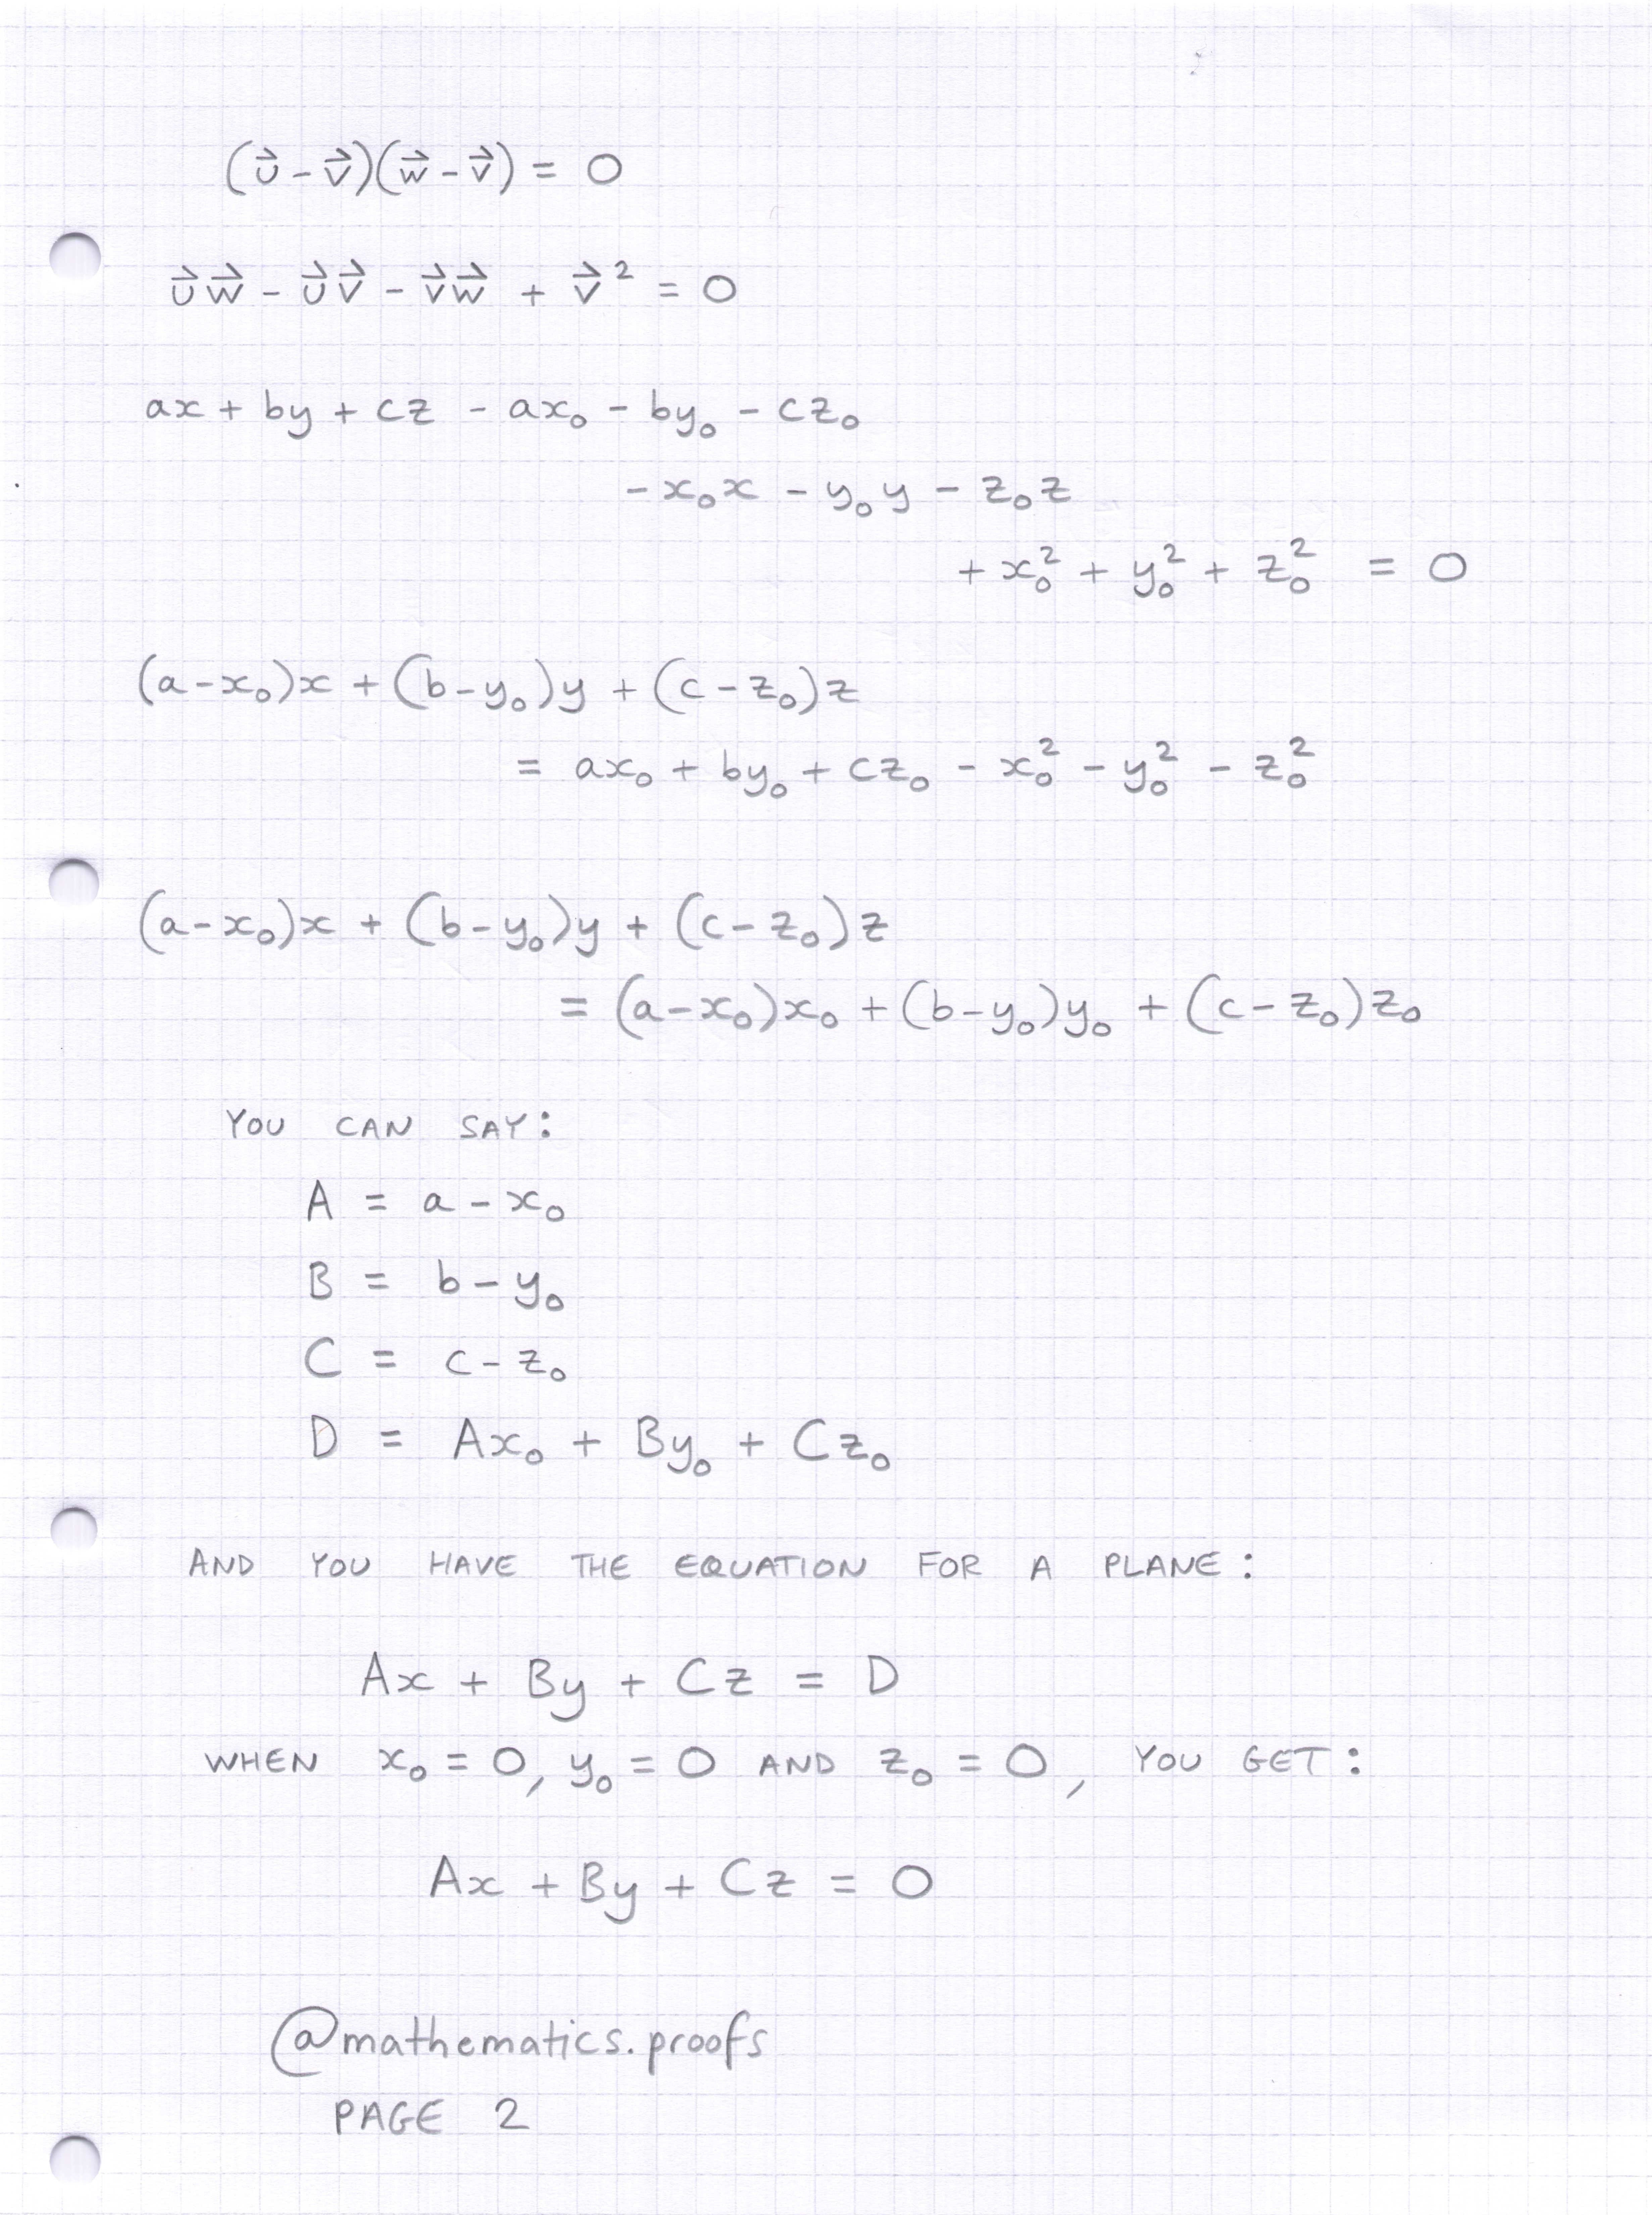 (u⃗ - v⃗)(w⃗ - v⃗) = 0
u⃗w⃗ - u⃗v⃗ - v⃗w⃗ + v⃗² = 0
ax + by + cz - ax₀ - by₀ - cz₀
- x₀x - y₀y - z₀z
+ x₀² + y₀² + z₀² = 0
(a-x₀)x + (b-y₀)y + (c-z₀)z
= ax₀ + by₀ + cz₀ - x₀² - y₀² - z₀²
(a-x₀)x + (b-y₀)y + (c-z₀)z
= (a-x₀)x₀ + (b-y₀)y₀ + (c-z₀)z₀
YOU CAN SAY:
A = a - x₀
B = b - y₀
C = c - z₀
D = Ax₀ + By₀ + Cz₀
AND YOU HAVE THE EQUATION FOR A PLANE:
Ax + By + Cz = D
WHEN x₀ = 0, y₀ = 0 AND z₀ = 0, YOU GET:
Ax + By + Cz = 0
@mathematics.proofs
PAGE 2